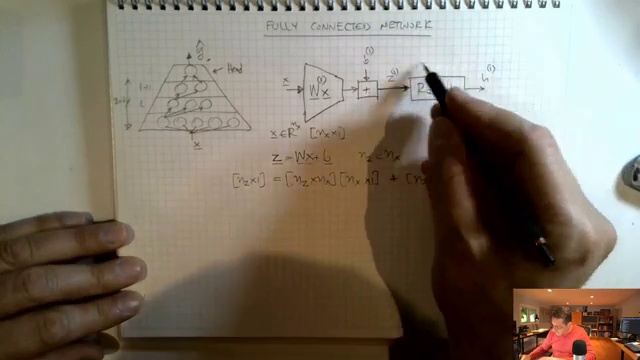 FULLY CONNECTED NETWORK
ŷ
Head
l+1
l
x
x
W^(1) x
b^(1)
+
z^(1)
h^(1)
x ∈ R^{n_x} [n_x x 1]
z = Wx + b n_z < n_x
[n_z x 1] = [n_z x n_x] [n_x x 1] +